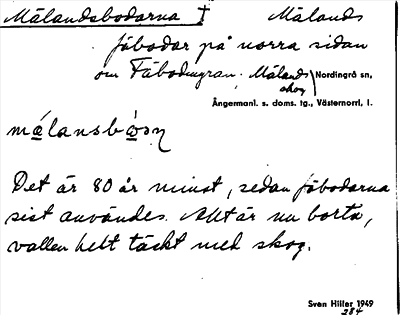 Målandsbodarna † Målands
fäbodar på norra sidan
om Fäbodmyran. Målands
skog
Nordingrå sn,
Ångermanl. s. doms. tg., Västernorrl. l.
målansbóḍɳ
Det är 80 år minst, sedan fäbodarna
sist användes. Allt är nu borta,
vallen helt täckt med skog.
Sven Hiller 1949
284